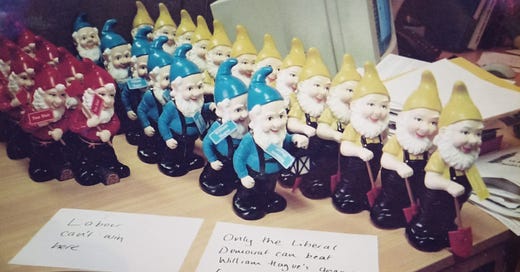 Labour
can't win
here
Only the Liberal
Democrat can beat
William Hague's